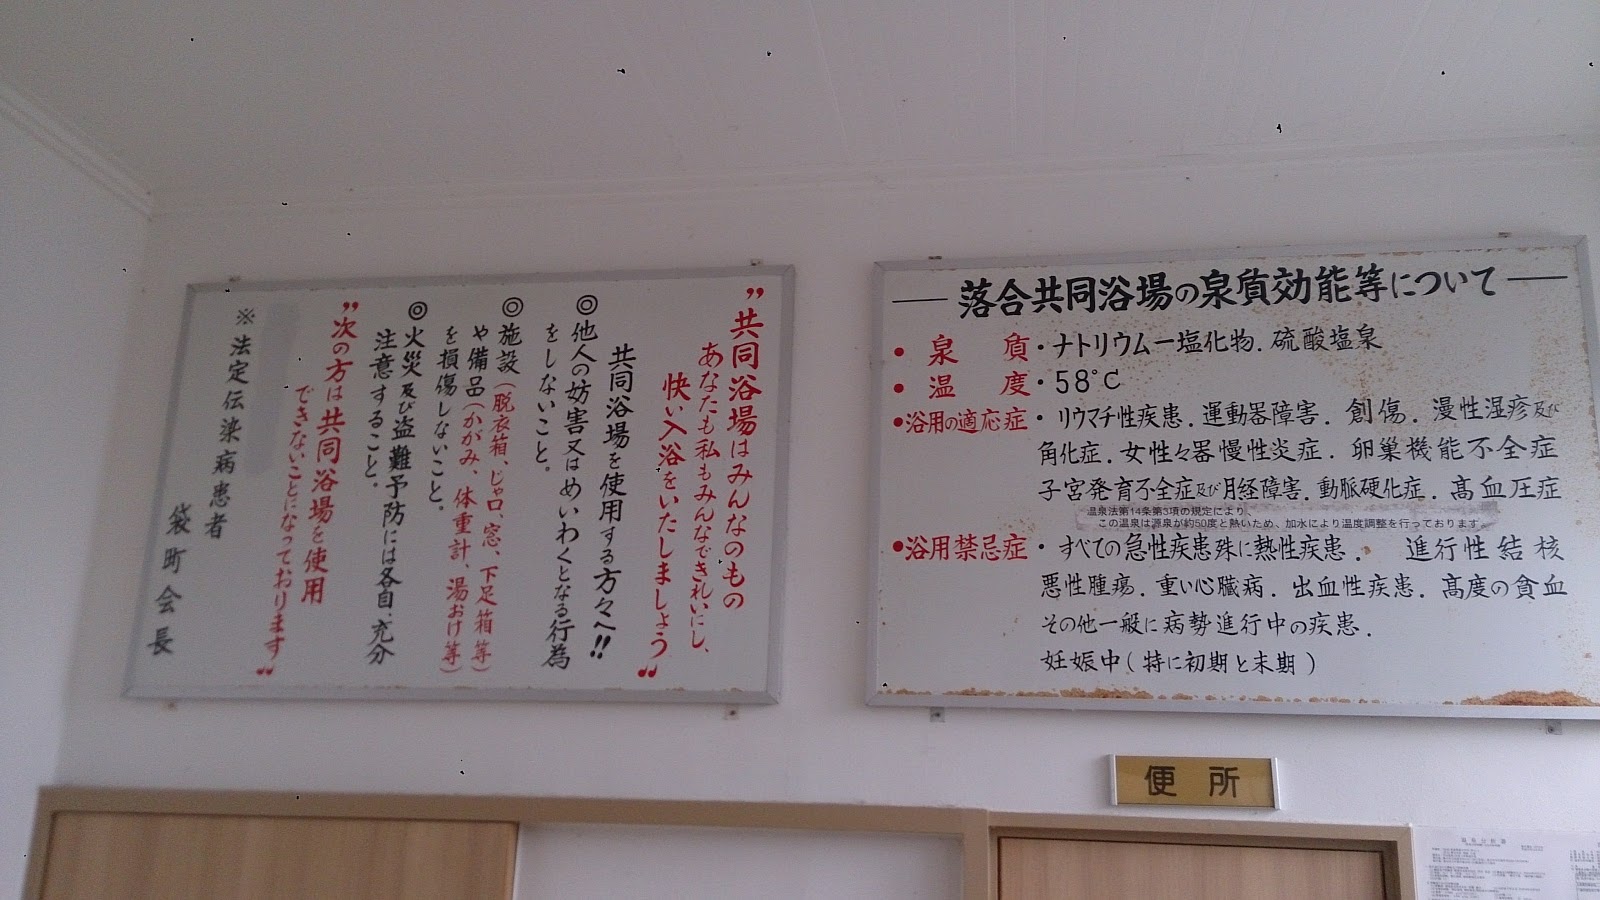 〝共同浴場はみんなのもの
あなたも私もみんなできれいにし、
快い入浴をいたしましょう〟
共同浴場を使用する方々へ!!
◎他人の妨害又はめいわくとなる行為
をしないこと。
◎施設(脱衣箱、じゃ口、窓、下足箱等)
や備品(かがみ、体重計、湯おけ等)
を損傷しないこと。
◎火災及び盗難予防には各自、充分
注意すること。
〝次の方は共同浴場を使用
できないことになっております〟
※法定伝染病患者
袋町会長
落合共同浴場の泉質効能等について
•泉質・ナトリウムー塩化物.硫酸塩泉
•温度・58℃
•浴用の適応症・リウマチ性疾患.運動器障害.創傷.漫性湿疹及び
角化症.女性々器慢性炎症.卵巣機能不全症
子宮発育不全症及び月経障害.動脈硬化症.高血圧症
温泉法第14条第3項の規定により、
この温泉は源泉が約50度と熱いため、加水により温度調整を行っております。
•浴用禁忌症・すべての急性疾患殊に熱性疾患.進行性結核
悪性腫瘍.重い心臓病.出血性疾患.高度の貧血
その他一般に病勢進行中の疾患.
妊娠中(特に初期と末期)
便所